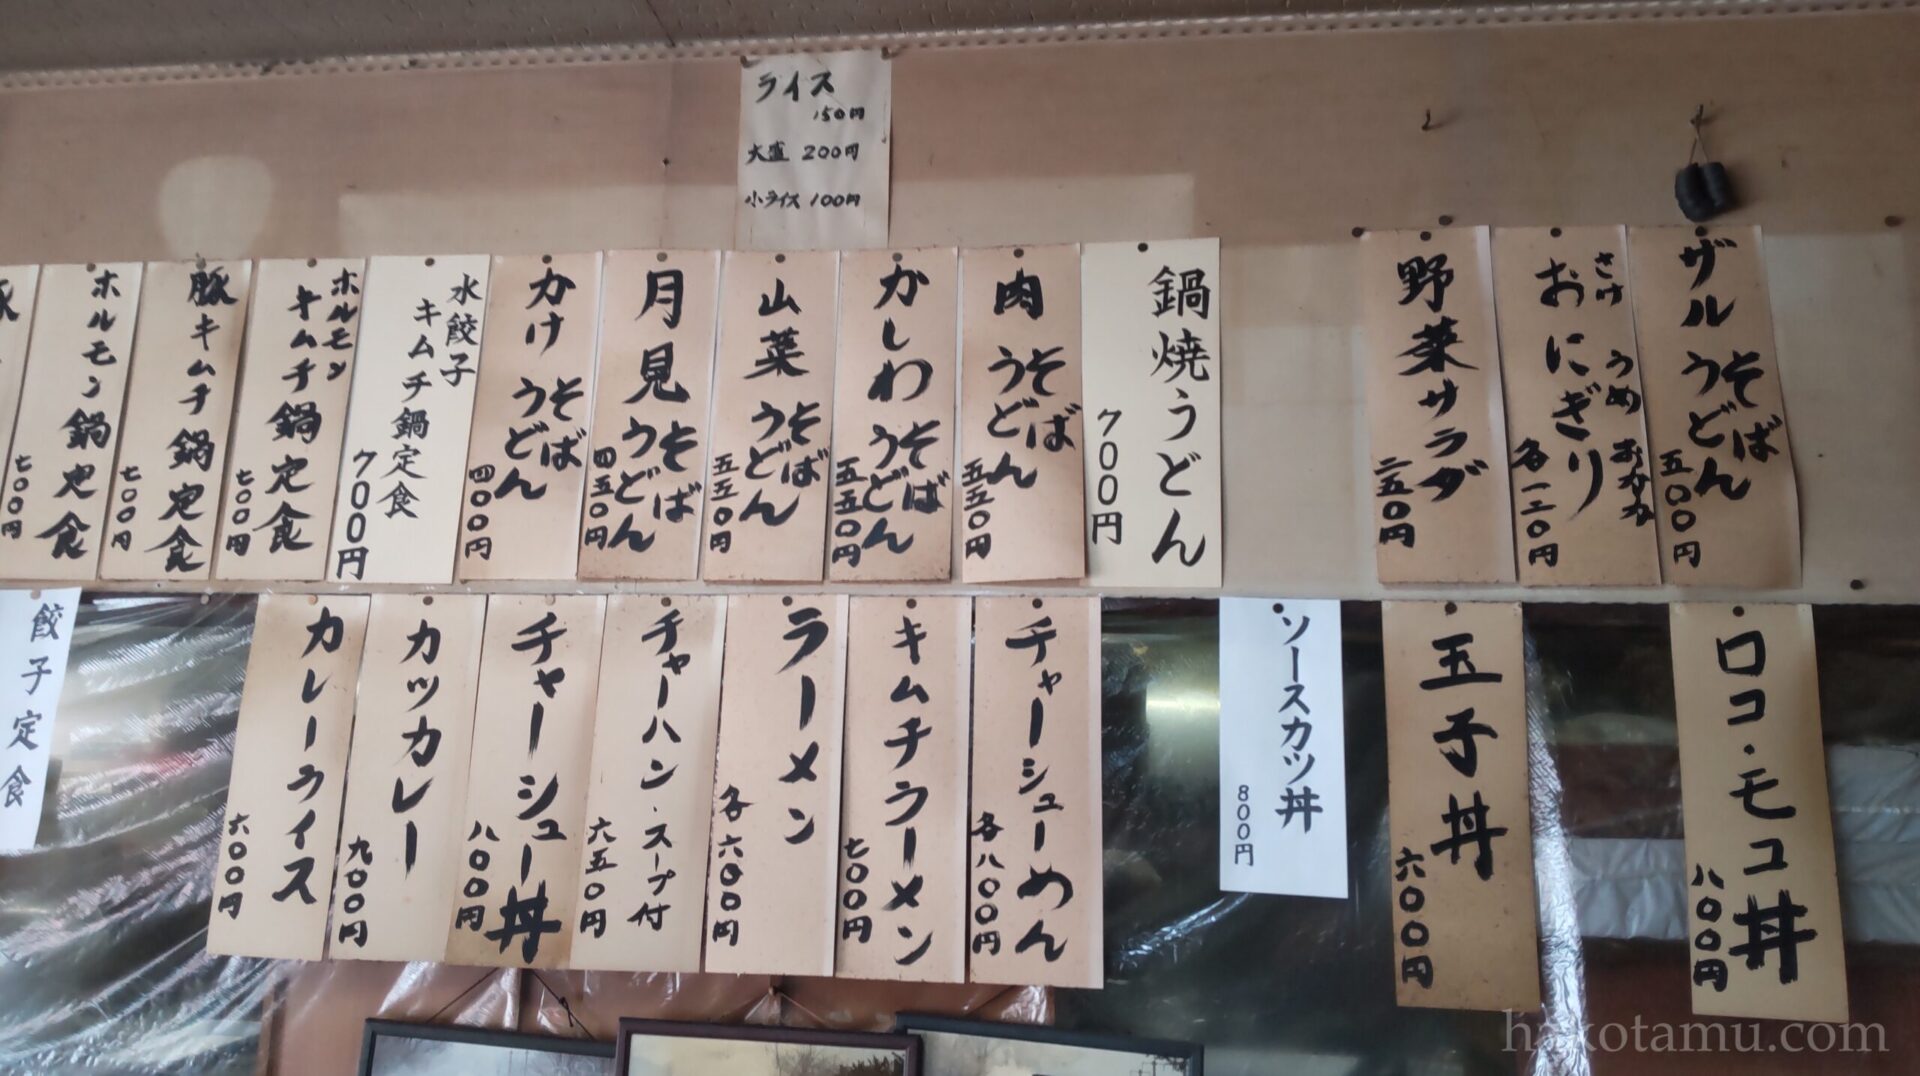 ライス
150円
大盛 200円
小ライス 100円
ザル そば うどん 五〇〇円
おにぎり さけ うめ おかか 各一二〇円
野菜サラダ 二五〇円
鍋焼うどん 700円
肉 そば うどん 五五〇円
かしわ そば うどん 五五〇円
山菜 そば うどん 五五〇円
月見 そば うどん 四五〇円
かけ そば うどん 四〇〇円
水餃子 キムチ鍋定食 700円
ホルモン キムチ鍋定食 七〇〇円
豚キムチ鍋定食 七〇〇円
ホルモン鍋定食 七〇〇円
ロコ・モコ丼 八〇〇円
玉子丼 六〇〇円
ソースカツ丼 800円
チャーシューめん 各八〇〇円
キムチラーメン 七〇〇円
ラーメン 各六〇〇円
チャーハン・スープ付 六五〇円
チャーシュー丼 八〇〇円
カツカレー 九〇〇円
カレーライス 六〇〇円
餃子定食
hakotamu.com